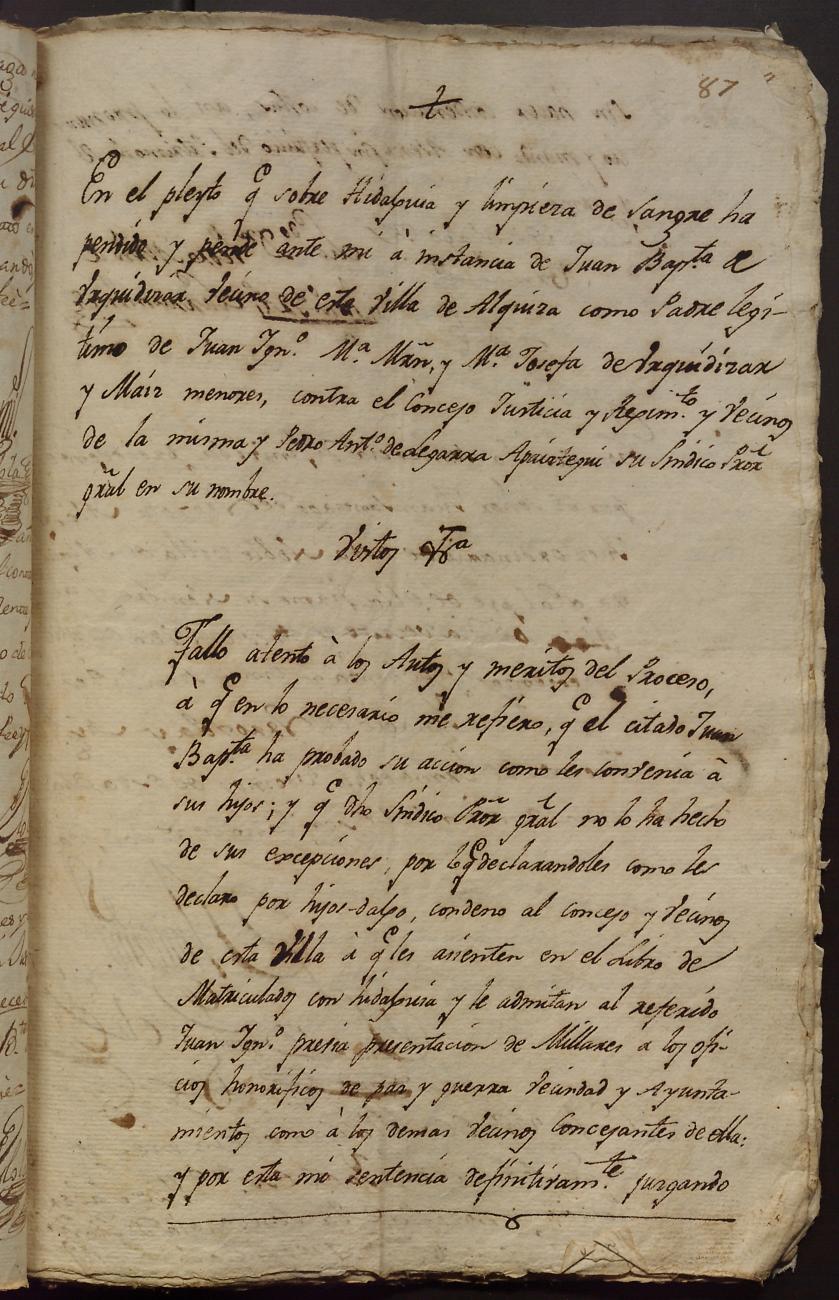 87
En el pleyto q̃ sobre Hidalguia y limpieza de sangre ha
pendido y pende ante mi à instancia de Juan Bap.ta de
Urquidizar vecino de esta Villa de Alquiza como Padre legi-
timo de Juan Ign.º M.ª Mrñ, y M.ª Josefa de Urquidizar
y Máiz menores, contra el Concejo Justicia y Regim.to y vecinos
de la misma y Pedro Ant.º de Legarra Apaiztegui su Sindico Pror̃
gr̃al en su nombre.
Vistos
Fallo atento à los Autos y meritos del Proceso,
à q̃ en lo necesario me refiero, q̃ el citado Juan
Bap.ta ha probado su accion como les convenia à
sus hijos; y q̃ dho Sindico Pror̃ gr̃al no lo ha hecho
de sus excepciones, por lo q̃ declarandoles como les
declaro por hijos-dalgo, condeno al concejo y vecinos
de esta Villa à q̃ les asienten en el Libro de
Matriculados con hidalguia y le admitan al referido
Juan Ign.º previa presentacion de Millares a los ofi-
cios honorificos de paz y guerra vecindad y Ayunta-
mientos como à los demas vecinos Concejantes de ella:
y por esta mi sentencia definitivam.te juzgando